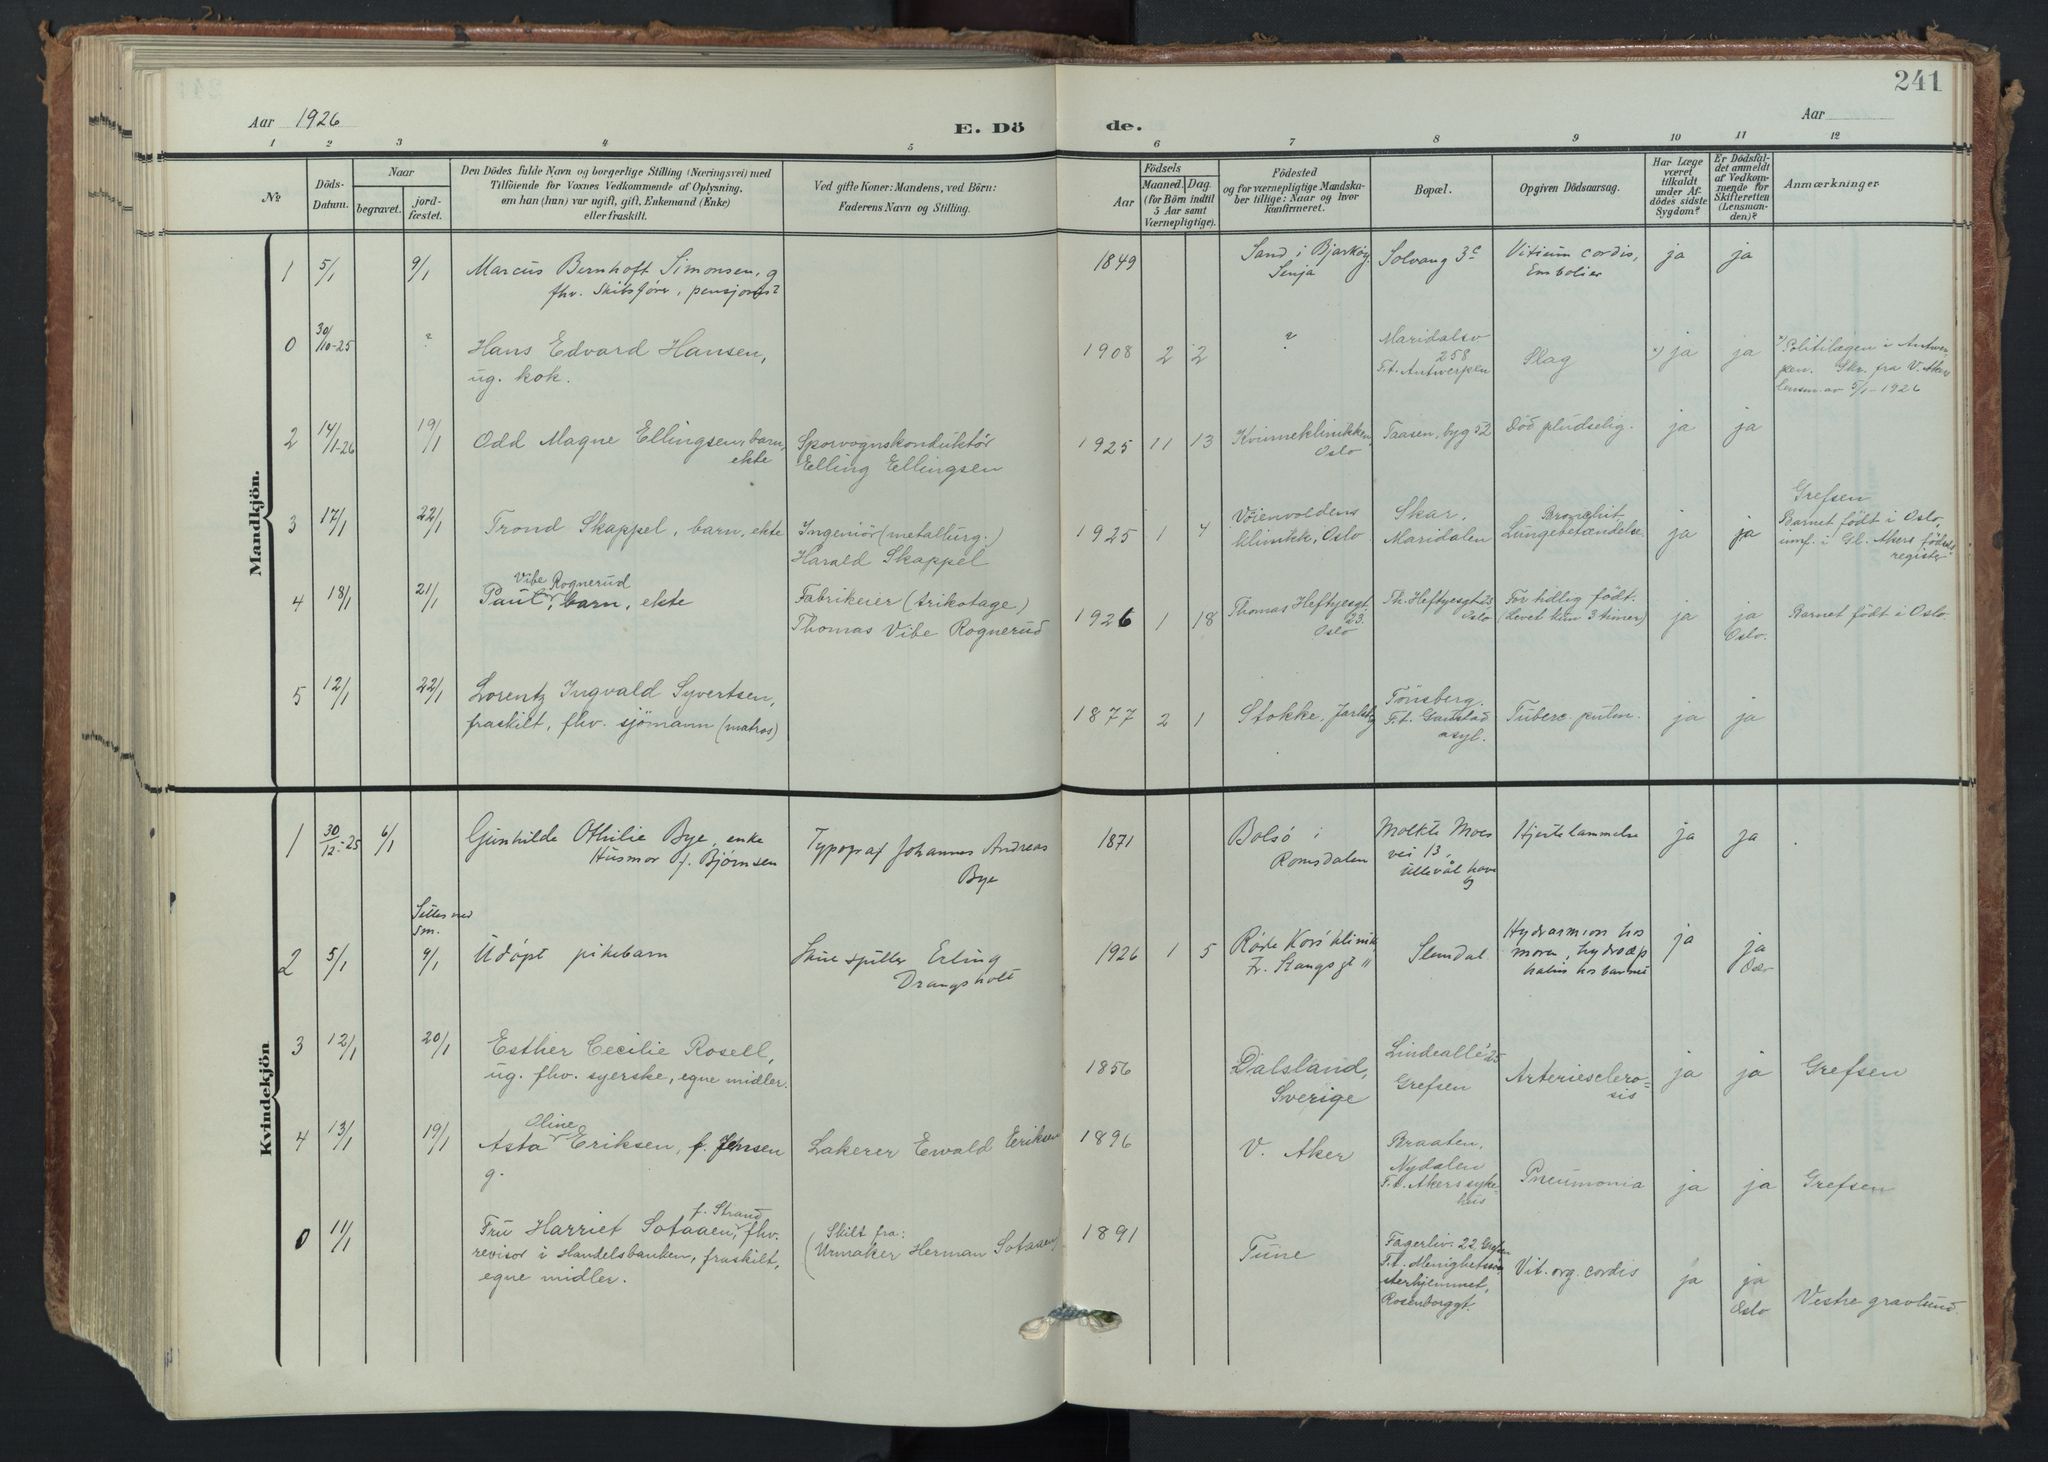 241
Aar 1926
E. Dö de.
Aar
1 2 3 4 5 6 7 8 9 10 11 12
No.
Döds-Datum.
Naar
begravet.
jord-fæstet.
Den Dödes fulde Navn og borgerlige Stilling (Næringsvei) med
Tilföiende for Voxnes Vedkommende af Oplysning,
om han (hun) var ugift, gift, Enkemand (Enke)
eller fraskilt.
Ved gifte Koner: Mandens, ved Börn:
Faderens Navn og Stilling.
Födsels
Aar
Maaned. Dag.
(for Börn indtil
5 Aar samt
Værnepligtige).
Födested
og for værnepligtige Mandska-
ber tillige: Naar og hvor
konfirmeret.
Bopæl.
Opgiven Dödsaarsag.
Har Læge
været
tilkaldt
under Af-
dödes sidste
Sygdom?
Er Dödsfal-
det anmeldt
af Vedkom-
mende for
Skifteretten
(Lensman-
den)?
Anmærkninger
Mandkjön.
1 5/1 9/1 Marcus Bernhoft Simonsen, g
fhv. Skibsfører, 1849 Sand i Bjarköy Senja Solvang 3c Vitium cordis, Embolier ja ja
0 30/10-25 ? Hans Edvard Hansen,
ug. kok. 1908 2 2 ? Maridalsv 258 F.t. Antwerpen Slag x) ja ja x) Politilægen i Antwer-
pen. Skr. fra V. Aker
lensm. av 5/1-1926
2 14/1-26 19/1 Odd Magne Ellingsen, barn,
ekte Sporvognskonduktör
Elling Ellingsen 1925 11 13 Kvinneklinikken Oslo Taasen, byg 52 Död pludselig. ja ja
3 17/1 22/1 Trond Skappel, barn, ekte Ingeniör (metallurg.)
Harald Skappel 1925 1 4 Vöienvoldens klinikk, Oslo Skar, Maridalen Bronchit Lungebetændelse ja ja Grefsen
Barnet födt i Oslo,
i Gl. Akers födsels
register
4 18/1 21/1 Paul Vibe Rognerud, barn, ekte Fabrikeier (trikotage)
Thomas Vibe Rognerud 1926 1 18 Thomas Heftyesgt. 23. Oslo Th. Heftyesgt 23 Oslo For tidlig födt. (Levet kun 3 timer) ja ja Oslo. Barnet födt i Oslo.
5 12/1 22/1 Lorentz Ingvald Syvertsen,
fraskilt, fhv. sjömann (matros) 1877 2 1 Stokke, Jarlsbg Tönsberg. F.t. Gaustad asyl. Tuberc. pulm. ja ja
Kvindekjön
1 30/12-25 6/1 Gunhilde Othilie Bye, enke
Husmor f. Bjørnsen Typograf Johannes Andreas
Bye 1871 Bolsö i Romsdalen Moltke Moes vei 13, Ullevål have Hjertelammelse ja ja
2 5/1 9/1 Udöpt pikebarn Skuespiller Erling
Drangsholt 1926 1 5 Røde Kors klinik, Fr. Stangsgt 11 Slemdal Hydramnion hos moren, hos barnet ja ja
3 12/1 20/1 Esther Cecilie Rosell,
ug. fhv. syerske, egne midler. 1856 Dalsland, Sverige Lindeallé 25 Grefsen Arteriesclero-
sis ja ja Grefsen
4 13/1 19/1 Asta Oline Eriksen, f. Jensen
g. Lakerer Ewald Eriksen 1896 V. Aker Braaten, Nydalen F.t. Akers syke-
hus Pneumonia ja ja Grefsen
0 11/1 Fru Harriet Sotaaen, f. Strand, fhv.
revisor i Handelsbanken, fraskilt,
egne midler. (Skilt fra:
Urmaker Herman Sotaaen) 1891 Tune Fagerliv. 22, Grefsen F.t. Menighetssö-
sterhjemmet, Rosenborggt. Vit. org. cordis ja ja Oslo Vestre gravlund.